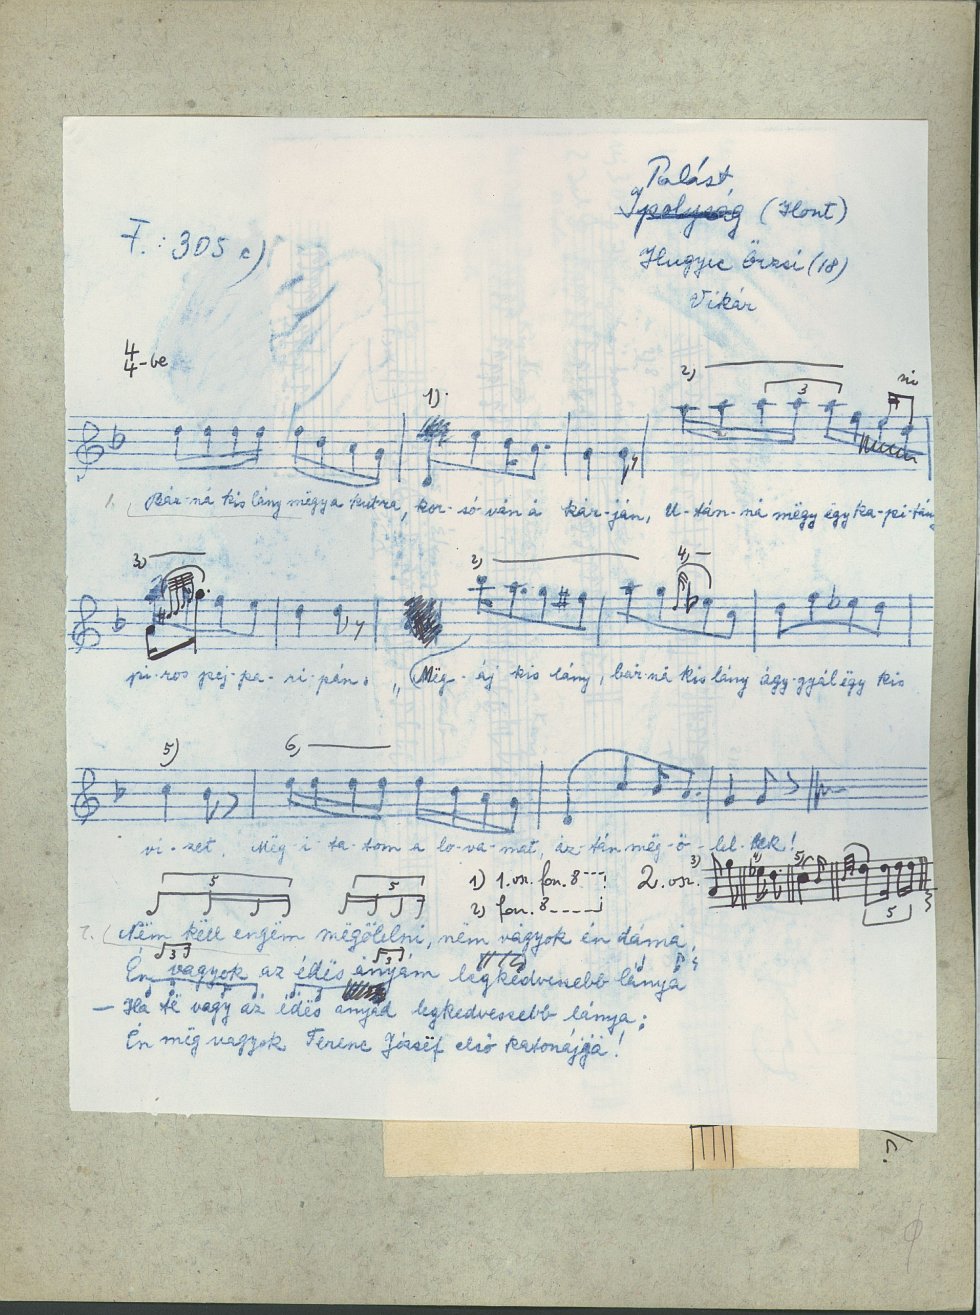 Palást
Ipolyság (Hont)
F.: 305 c)
Hugyec Örzsi (18)
Vikár
4/4-be
1)
2)
3
1. Bár-ná kis lány mëgy a kutra, kor-só-ván á kár-ján, U-tán-ná mëgy ëgy ka-pi-tán
3)
2)
4)
pi-ros pej-pa-ri-pán. „Mëg-áj kis lány, bár-ná kis lány ágy-gyál ëgy kis
5)
6)
vi-zet. Mëg-i-ta-tom a lo-va-mat, áz-tán mëg-ö-lel-lek!
5
5
1) 1. vsz. fon. 8
2. vsz.
3)
4)
5)
5
2) fon. 8
2. Nëm këll engëm mëgölelni, nëm vágyok én dámá,
3
3
Én vagyok az édës ányám legkedvesebb lányá
— Há të vagy áz édës ányád legkedvessebb lánya;
Én mëg vagyok Ferenc Józsëf elsö katonájjá!
c.